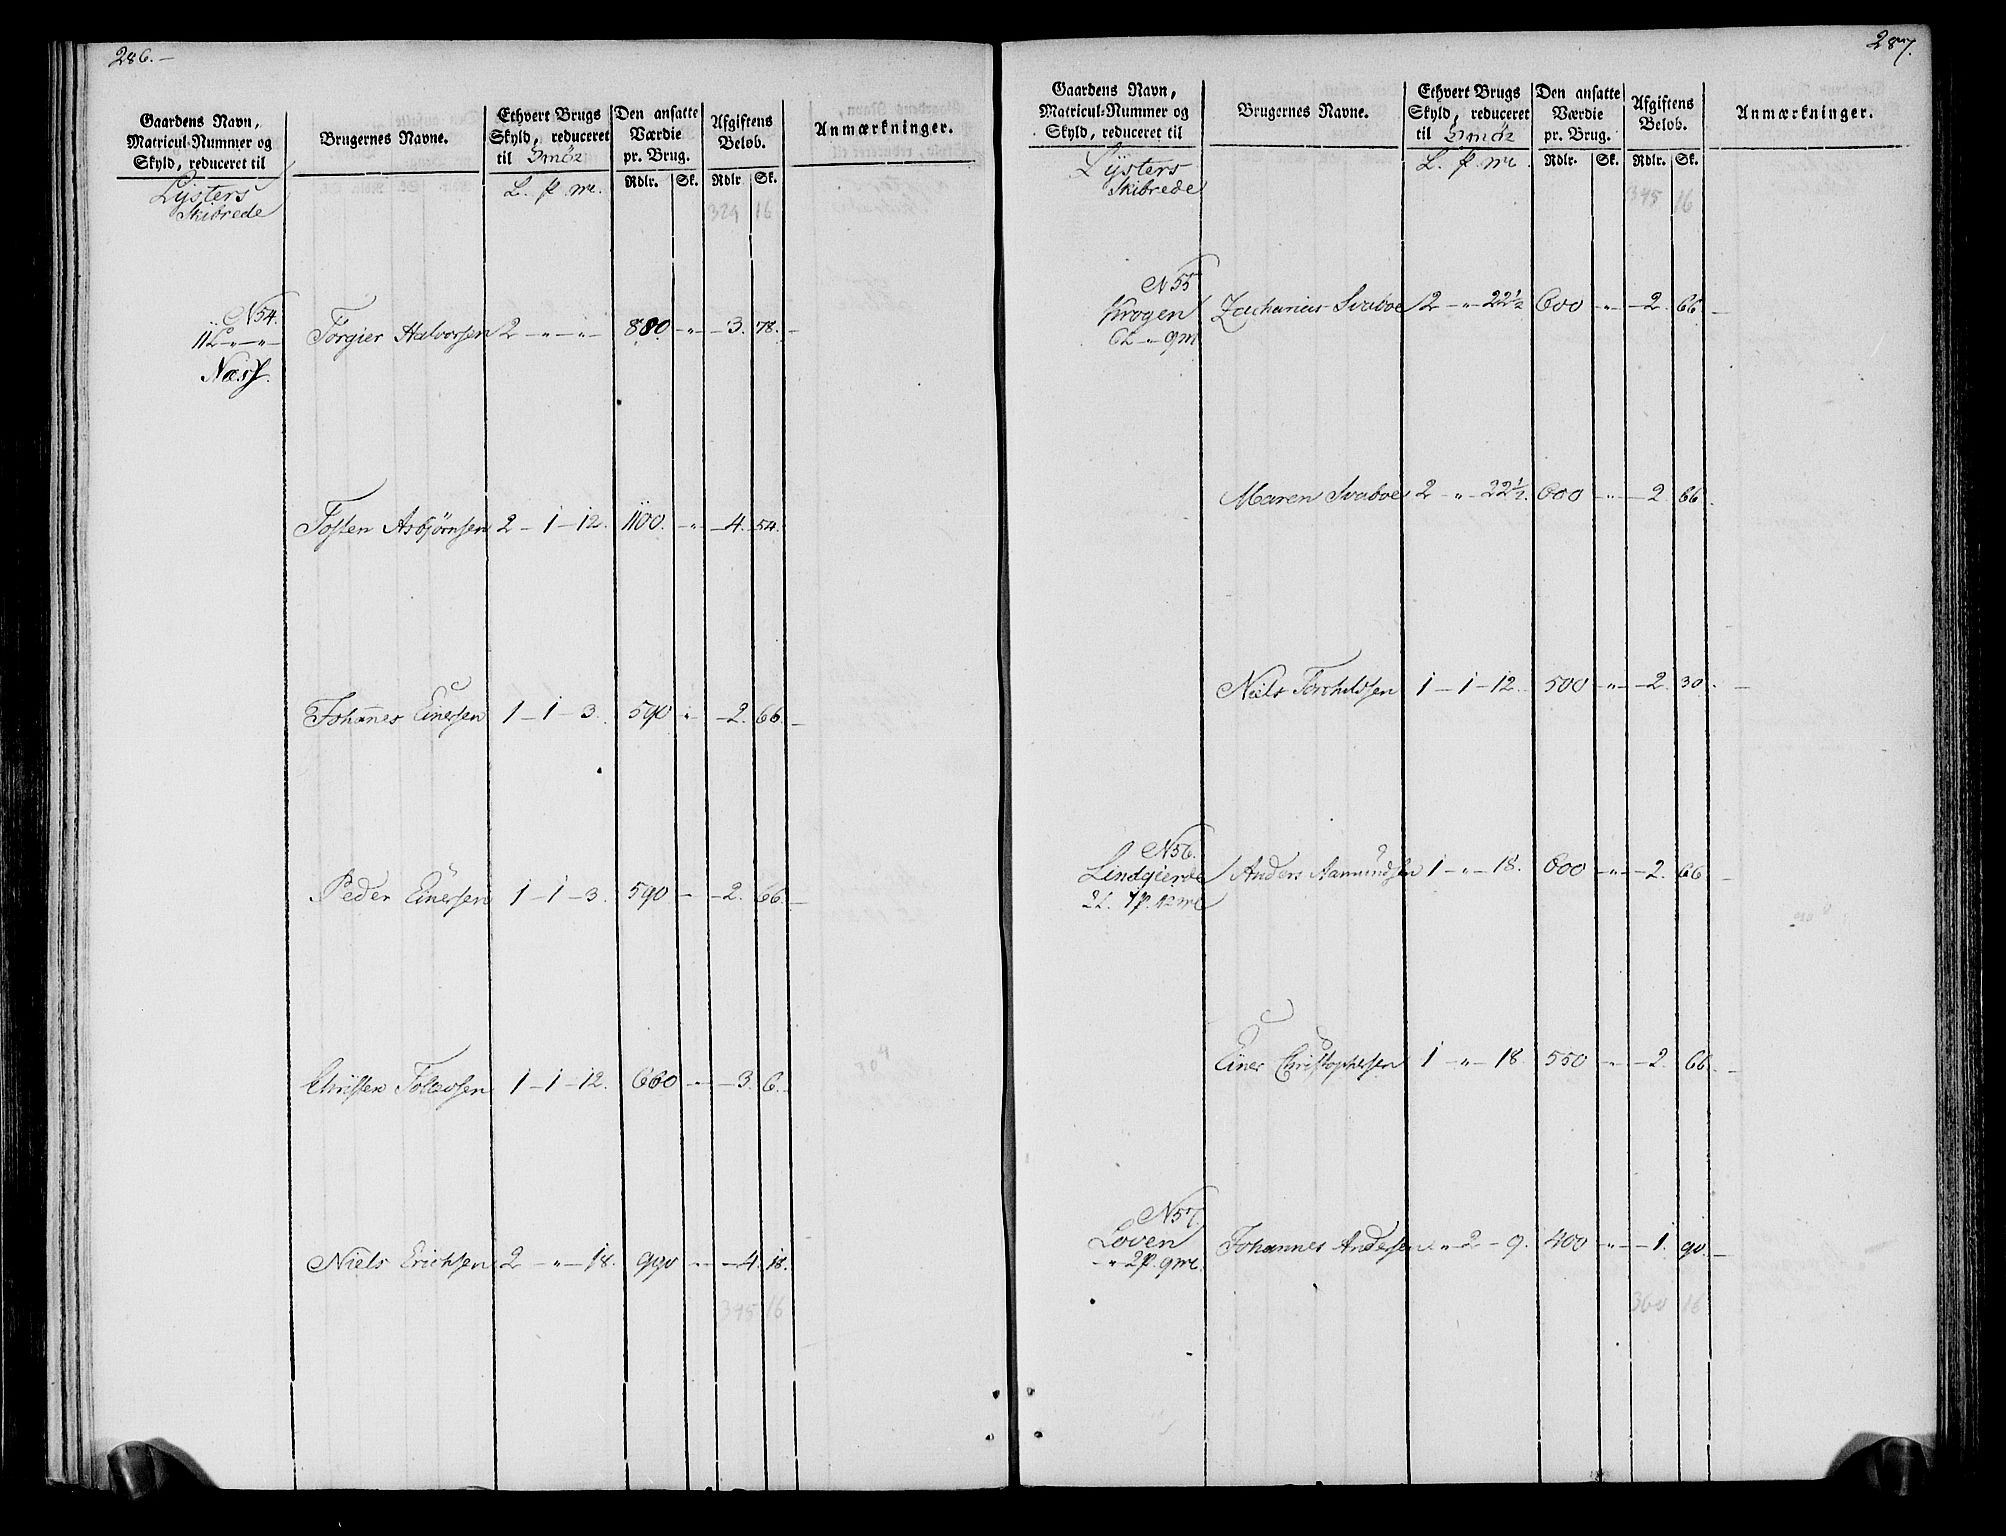 286.—
Gaardens Navn,
Matricul-Nummer og
Skyld, reduceret til
Brugernes Navne.
Ethvert Brugs
Skyld, reduceret
til Smör
Den ansatte
Værdie
pr. Brug.
Afgiftens
Beløb.
Anmærkninger.
Rdlr. Sk. Rdlr. Sk.
Lÿsters
Skibrede
L. p me.
329 16
N 54.
11 L - " - " -
Næss.
Torgier Halvorsen 2 - " - " - 880 - " - 3. 78. -
Tosten Asbjörnsen 2 - 1 - 12. 1100. - " - 4. 54.
Johannes Einersen 1 - 1 - 3. 590 " - 2. 66. -
Peder Einersen 1 - 1 - 3. 590 - - 2. 66. -
Christen Tolevsen 1 - 1 - 12. 660 - " - 3. 6. -
Niels Erichsen 2 - " - 18. 990 - " - 4. 18.
345 16
287.
Gaardens Navn,
Matricul-Nummer og
Skyld, reduceret til
Brugernes Navne.
Ethvert Brugs
Skyld, reduceret
til Smör
Den ansatte
Værdie
pr. Brug.
Afgiftens
Beløb.
Anmærkninger.
L. p. me
Rdlr. Sk. Rdlr. Sk.
Lÿsters
Skibrede
345 16
N 55
Krogen
6 L - " - 9 m
Zacharias Svaboe 2 - " - 22½ 600 - " - 2. 66. -
Maren Svaboe 2 - " - 22½. 600 - " - 2. 66.
Niels Torchildsen 1 - 1 - 12. 500 - " - 2. 30. -
N 56.
Lindgierde
2 L. 1 p. 12 me
Anders Aamundsen 1 - " - 18. 600 - " - 2. 66. -
Einer Christophersen 1 - " - 18. 550 - " - 2. 66. -
N 57.
Loven
- " 2 p. 9 me.
Johannes Andersen " - 2 - 9. 400 - " - 1. 90. -
360 16